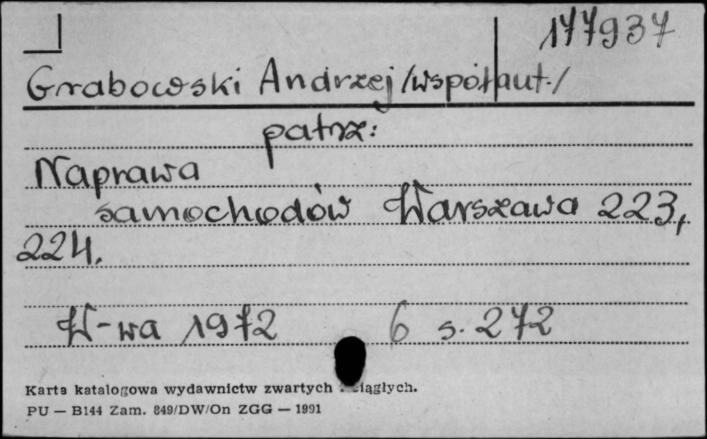 177937
Grabowski Andrzej /współaut./
patrz:
Naprawa
samochodów Warszawa 223,
224.
W-wa 1972 6 s. 272
Karta katalogowa wydawnictw zwartych ciągłych.
PU — B144 Zam. 849/DW/On ZGG — 1991